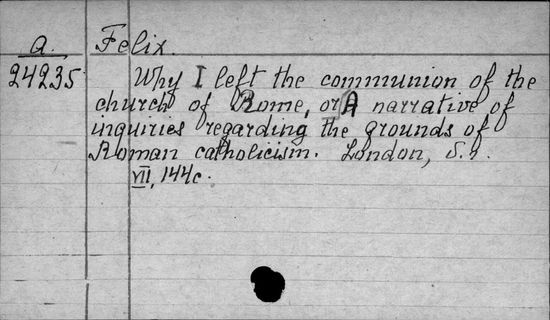 A. Felix.
24235 Why I left the communion of the
church of Rome, or A narrative of
inquiries regarding the grounds of
Roman catholicism. London, S.a.
VII, 144c.